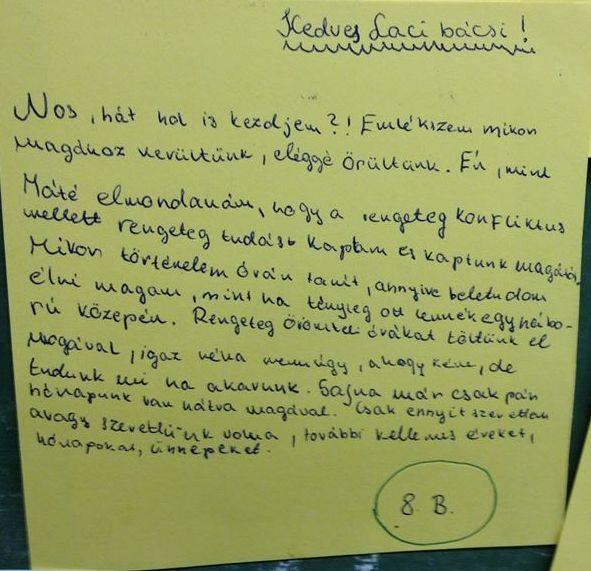 Kedves Laci bácsi!
Nos, hát hol is kezdjem?! Emlékszem mikor
magához kerültünk, eléggé örültünk. Én, mint
Máté elmondanám, hogy a rengeteg konfliktus
mellett rengeteg tudást kaptam és kaptunk magától.
Mikor történelem órán tanít, annyira beletudom
élni magam, mint ha tényleg ott lennék egy hábo-
rú közepén. Rengeteg örömteli órákat töltünk el
magával, igaz néha nem úgy, ahogy kéne, de
tudunk mi ha akarunk. Sajna már csak pár
hónapunk van hátra magával. Csak ennyit szerettem
avagy szerettü-ünk volna, további kellemes éveket,
hónapokat, ünnepeket.
8. B.